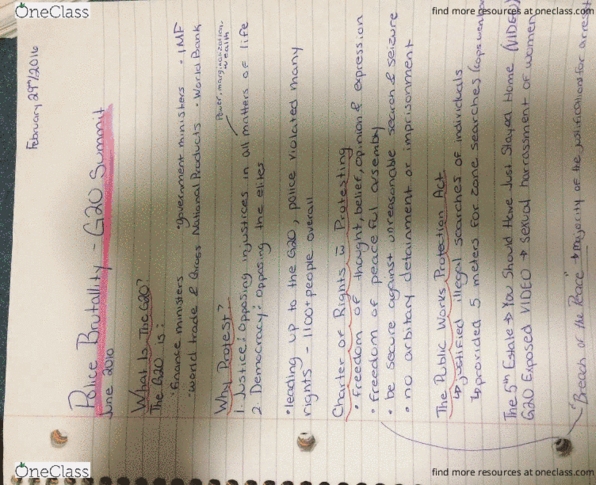 OneClass
find more resources at oneclass.com
February 29th/2016
Police Brutallity - G20 Summit
June 2010
What Is The G20?
The G20 is:
• finance ministers • government ministers • IMF
• world trade & Gross National Products • World Bank
Power, marginalization, wealth
Why Protest?
1. Justice: opposing injustices in all matters of life
2. Democracy: opposing the elites
• leading up to the G20, police violated many
rights - 1100+ people overall
Charter of Rights Protesting
• Freedom of thought, belief, opinion & expression
• Freedom of peaceful assembly
• be secure against unreasonable search & seizure
• no arbitrary detainment or imprisonment
The Public Works Protection Act
↳ justified illegal searches of individuals
↳ provided 5 meters for zone searches (cops went
The 5th Estate → You Should Have Just Stayed Home (VIDEO)
G20 Exposed VIDEO → sexual harrassment of women
"Breach of the Peace" → majority of the justifications for arrest
OneClass
find more resources at oneclass.com